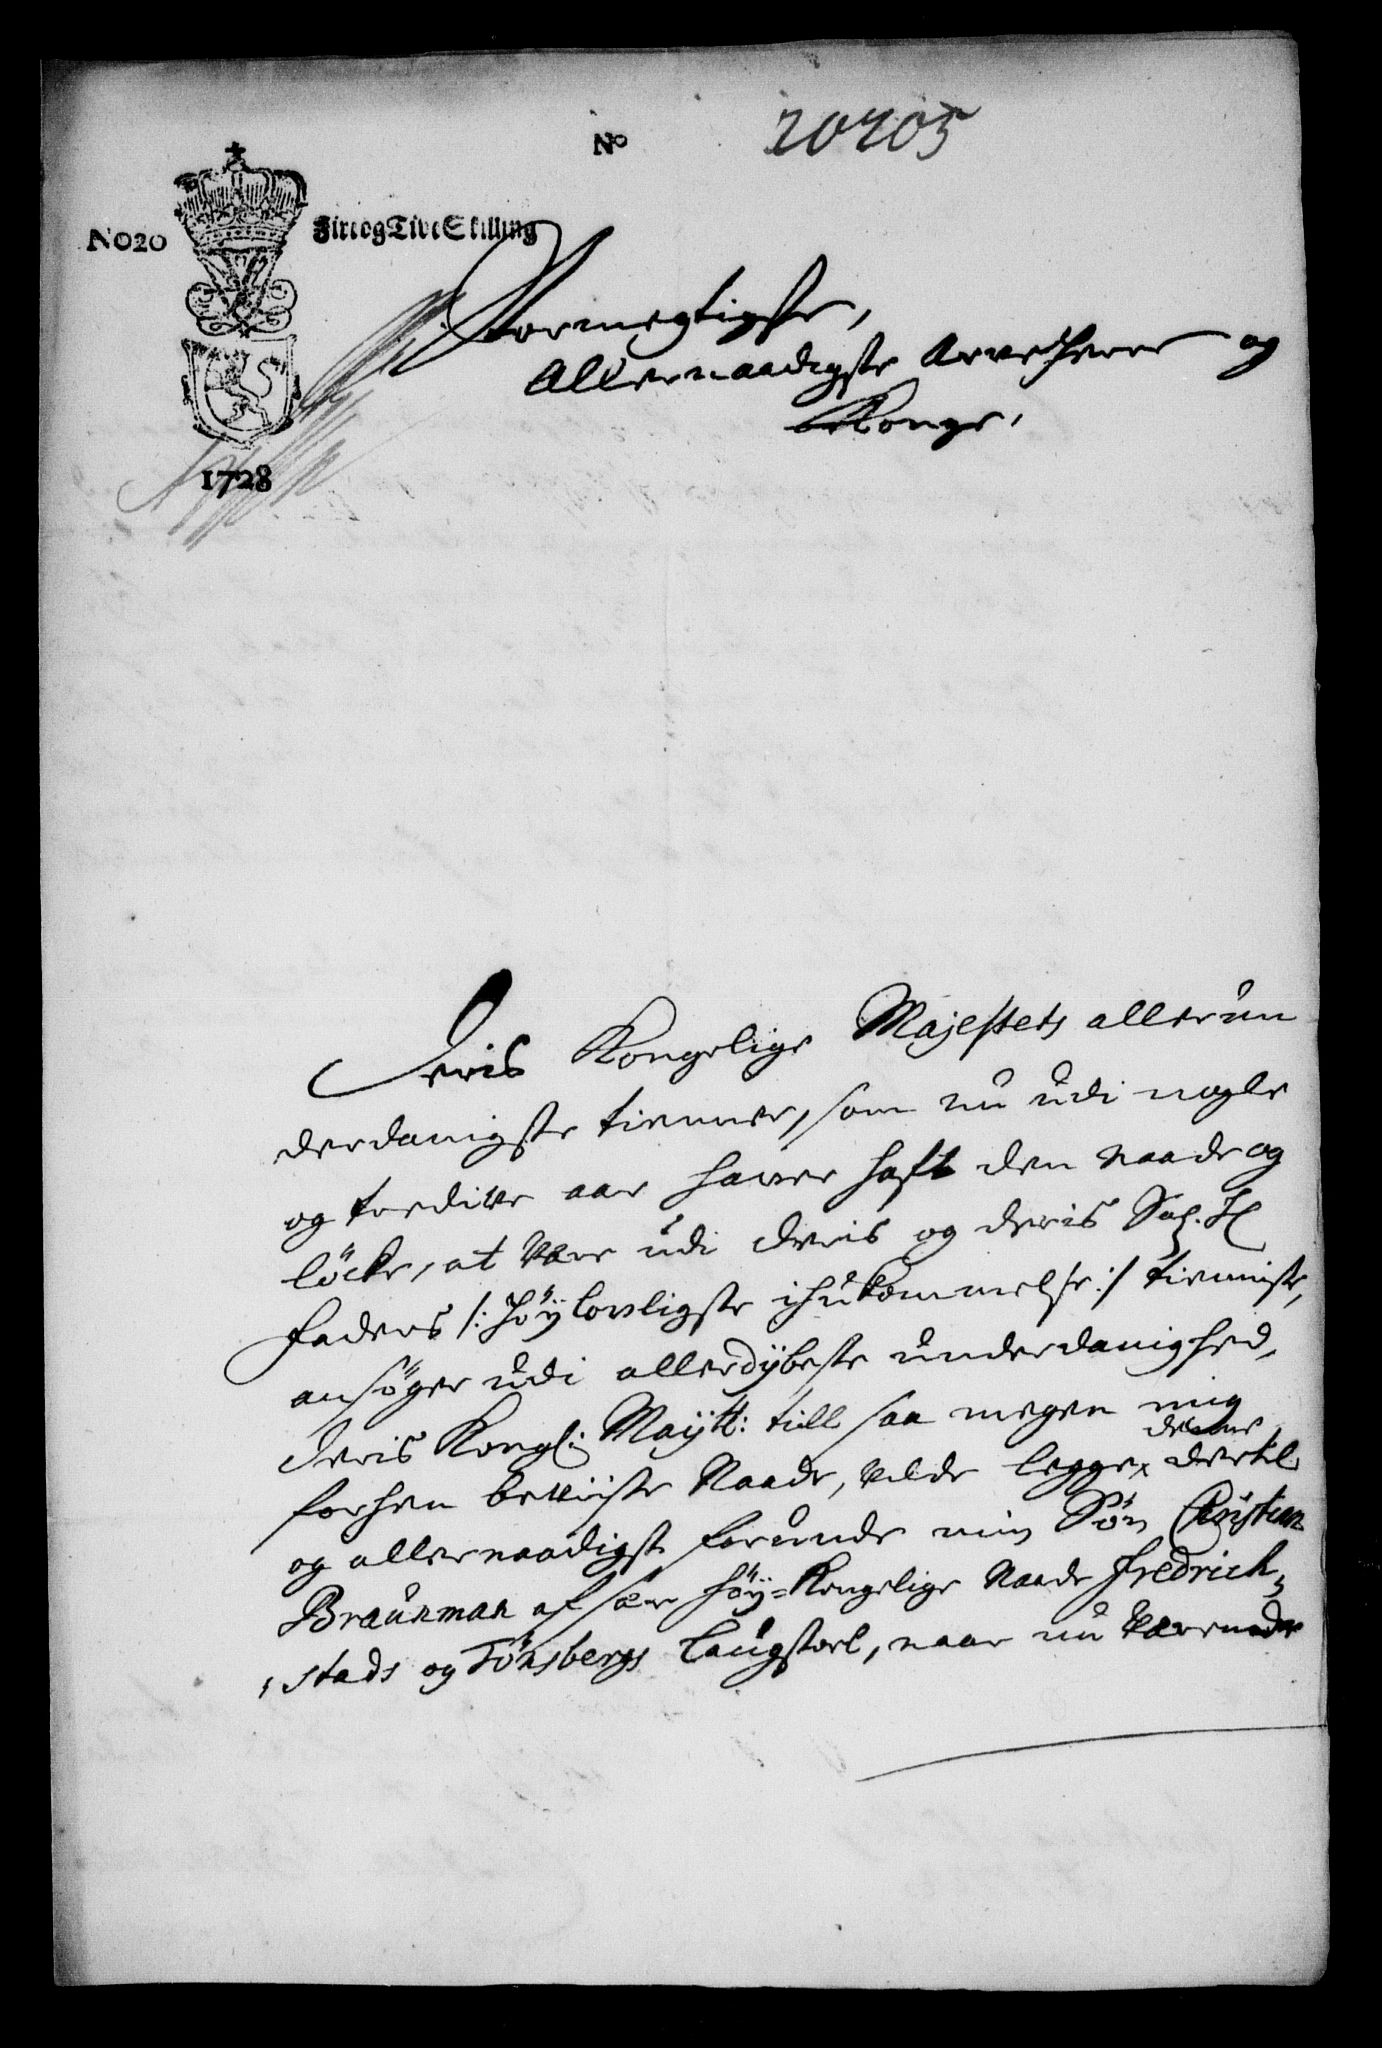 No 20205
No20 Fire og Tive Skilling
Stormegtigste,
Allernaadigste Arve Herre og
Konge,
1728
Deris Kongelige Majestets allerun
derdanigste tienner, som nu udi nogle
og tredive aar haver haft den Naade og
löcke, at være udi deris og deris Sal. H
faders /: höylovligste ihukommelse :/ tienniste,
ansöger udi allerdÿbeste underdanighed,
deris Kongl: Maÿtt: till saa megen mig
denne
forhen beviiste Naade, vilde legge dertil
og allernaadigst forunde min Sön Christian
Braünman af sær höÿ-Kongelige Naade Fredrich-
stads og Tönsbergs Laugstoel, naar nu værende